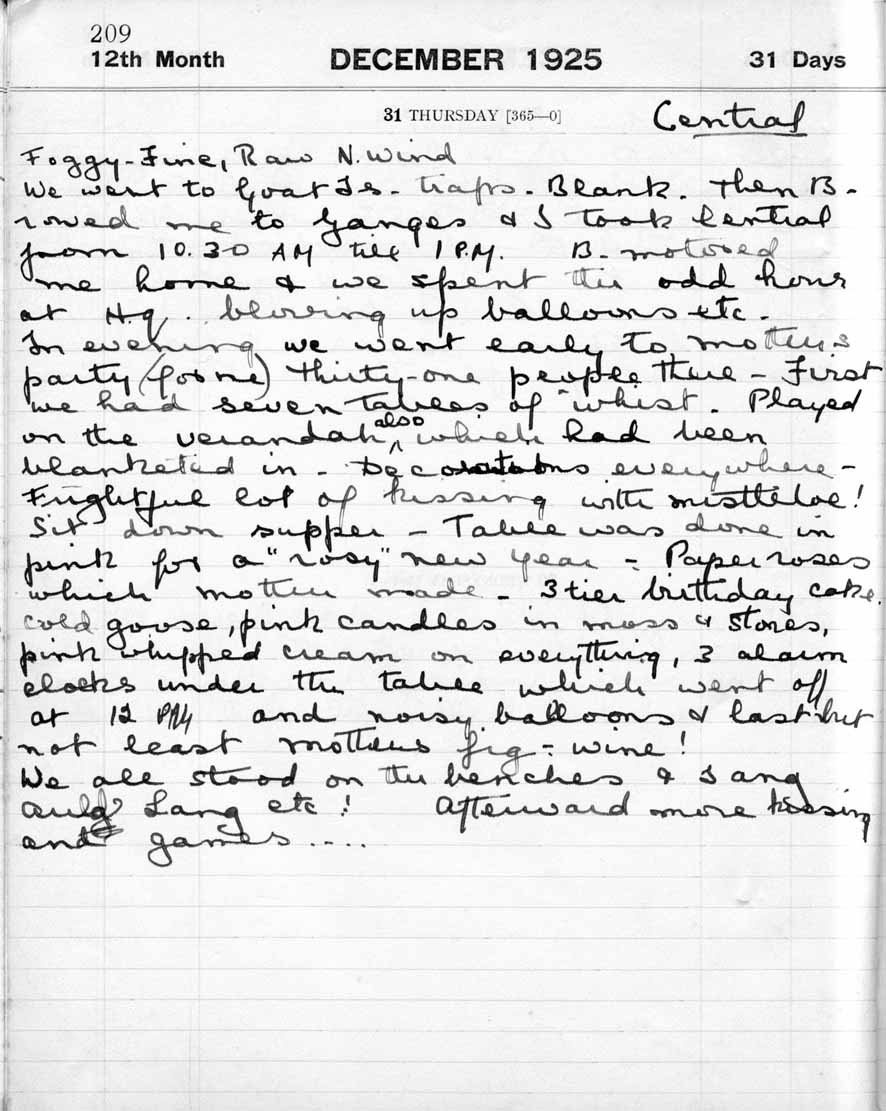 209
12th Month DECEMBER 1925 31 Days
31 THURSDAY [365—0] Central
Foggy - Fine, Raw N. Wind
We went to Goat Is - traps - Blank. Then B -
rowed me to Ganges & I took Central
from 10.30 AM till 1 P.M. B - motored
me home & we spent the odd hour
at H.q. blowing up balloons etc.
In evening we went early to mothers
party (for me) Thirty-one people there - First
we had seven tables of whist. Played
on the verandah also which had been
blanketed in - Decorations everywhere -
Frightful lot of kissing with mistletoe!
Sit down supper - Table was done in
pink for a "rosy" new year - Paper roses
which mother made - 3 tier birthday cake,
cold goose, pink candles in moss & stones,
pink whipped cream on everything, 3 alarm
clocks under the table which went off
at 12 PM and noisy balloons & last but
not least mothers fig - wine!
We all stood on the benches & sang
auld Lang etc! Afterward more kissing
and games ....